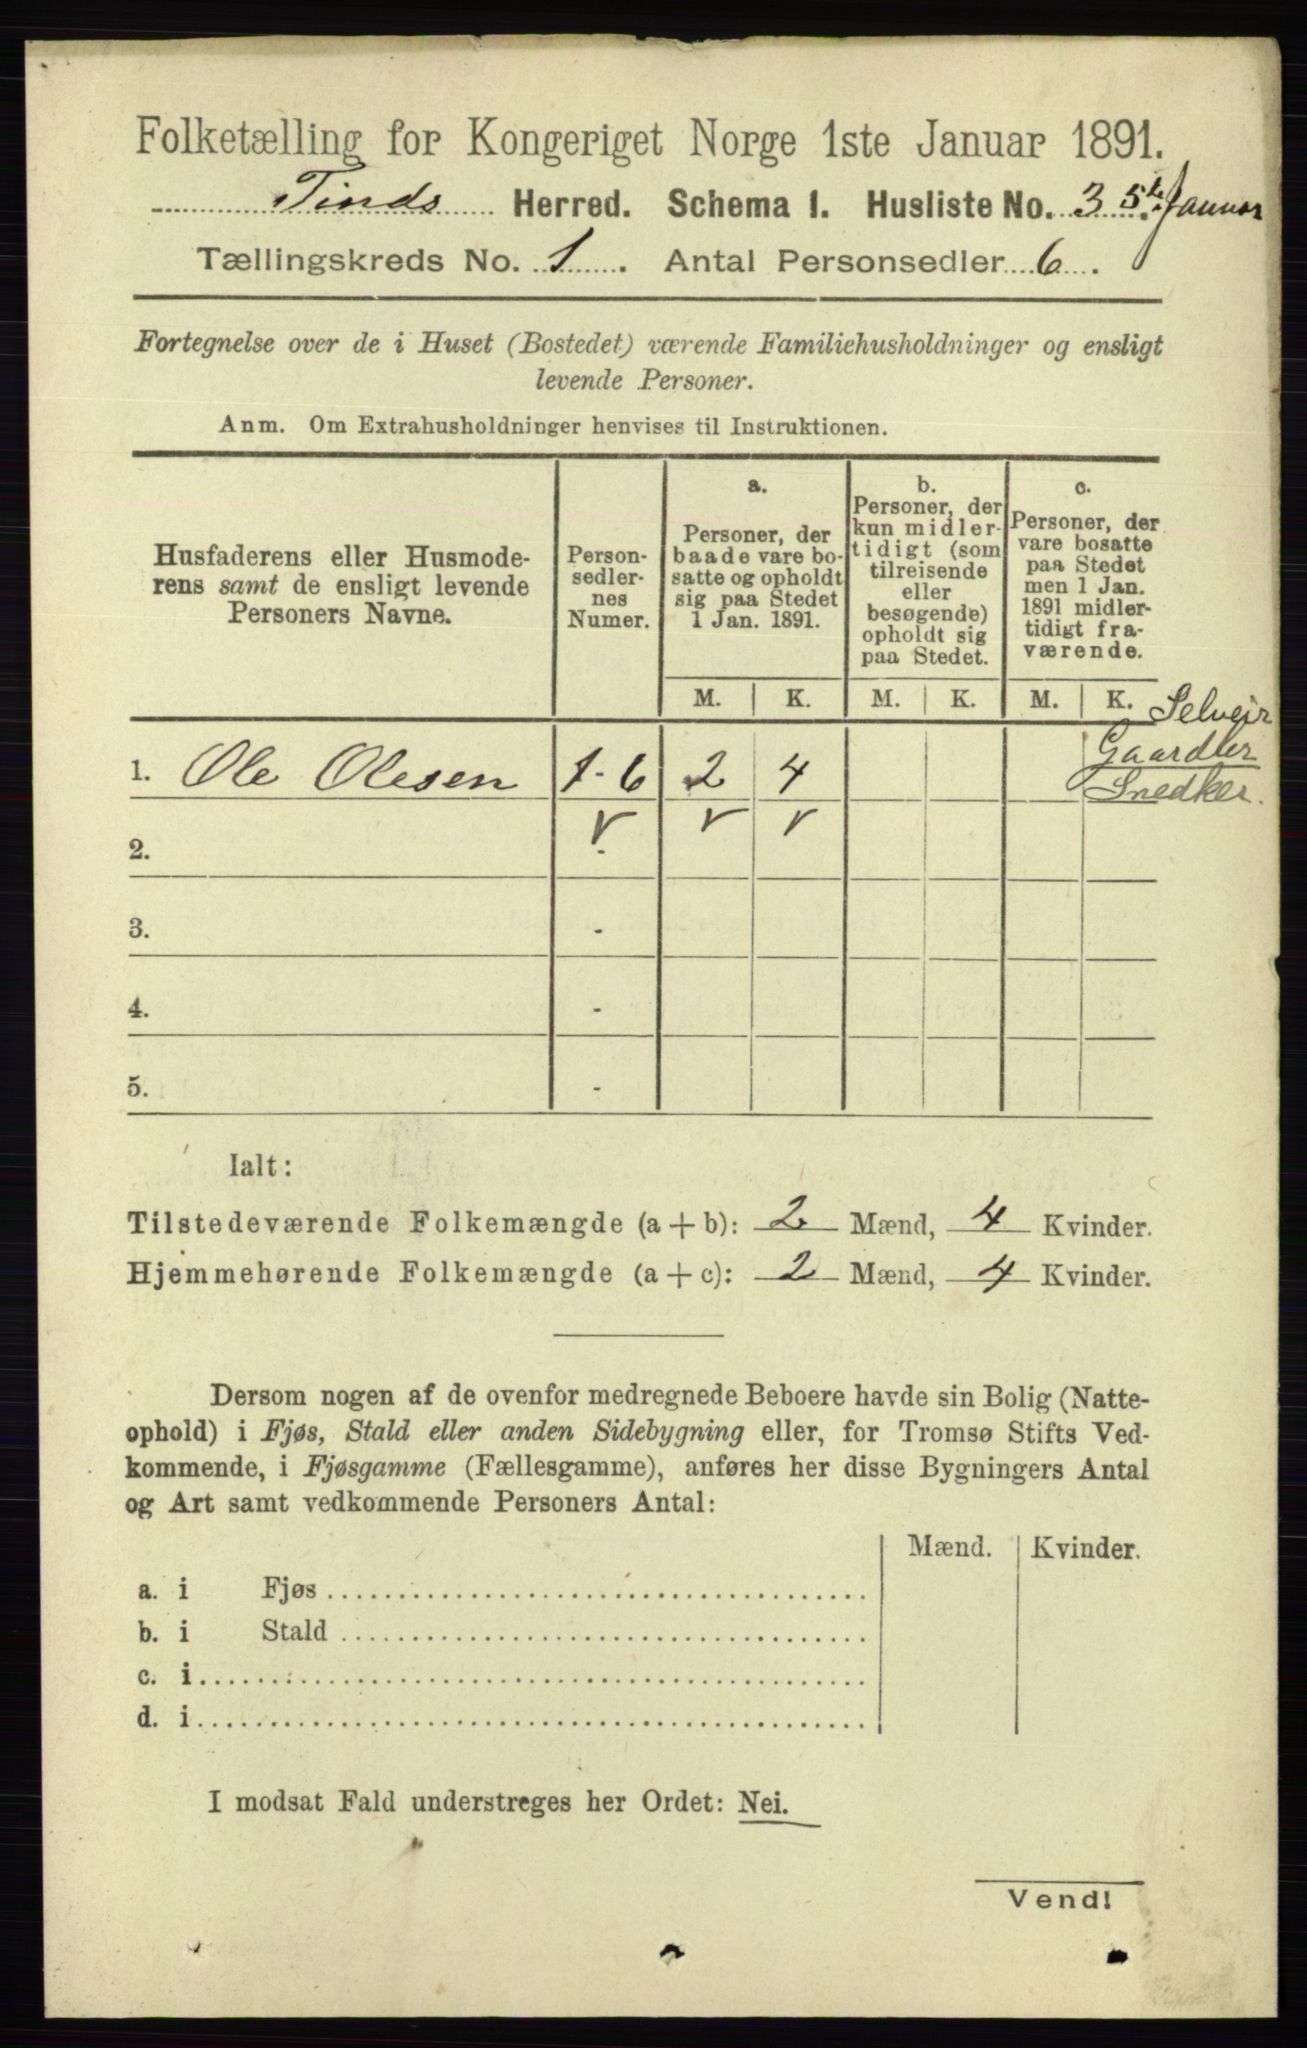 Folketælling for Kongeriget Norge 1ste Januar 1891.
Tinds Herred. Schema I. Husliste No. 3 5te Januar
Tællingskreds No. 1. Antal Personsedler 6.
Fortegnelse over de i Huset (Bostedet) værende Familiehusholdninger og ensligt
levende Personer.
Anm. Om Extrahusholdninger henvises til Instruktionen.
Husfaderens eller Husmode-
rens samt de ensligt levende
Personers Navne.
Person-
sedler-
nes
Numer.
a.
Personer, der
baade vare bo-
satte og opholdt
sig paa Stedet
1 Jan. 1891.
b.
Personer, der
kun midler-
tidigt (som
tilreisende
eller
besøgende)
opholdt sig
paa Stedet.
c.
Personer, der
vare bosatte
paa Stedet
men 1 Jan.
1891 midler-
tidigt fra-
værende.
M. K. M. K. M. K.
Selveir
Gaardbr
Snedker.
1. Ole Olesen 1-6 2 4
2. -
3. -
4. -
5. -
Ialt:
Tilstedeværende Folkemængde (a + b): 2 Mænd, 4 Kvinder.
Hjemmehørende Folkemængde (a + c): 2 Mænd, 4 Kvinder.
Dersom nogen af de ovenfor medregnede Beboere havde sin Bolig (Natte-
ophold) i Fjøs, Stald eller anden Sidebygning eller, for Tromsø Stifts Ved-
kommende, i Fjøsgamme (Fællesgamme), anføres her disse Bygningers Antal
og Art samt vedkommende Personers Antal:
Mænd. Kvinder.
a. i Fjøs
b. i Stald
c. i
d. i
I modsat Fald understreges her Ordet: Nei.
Vend!